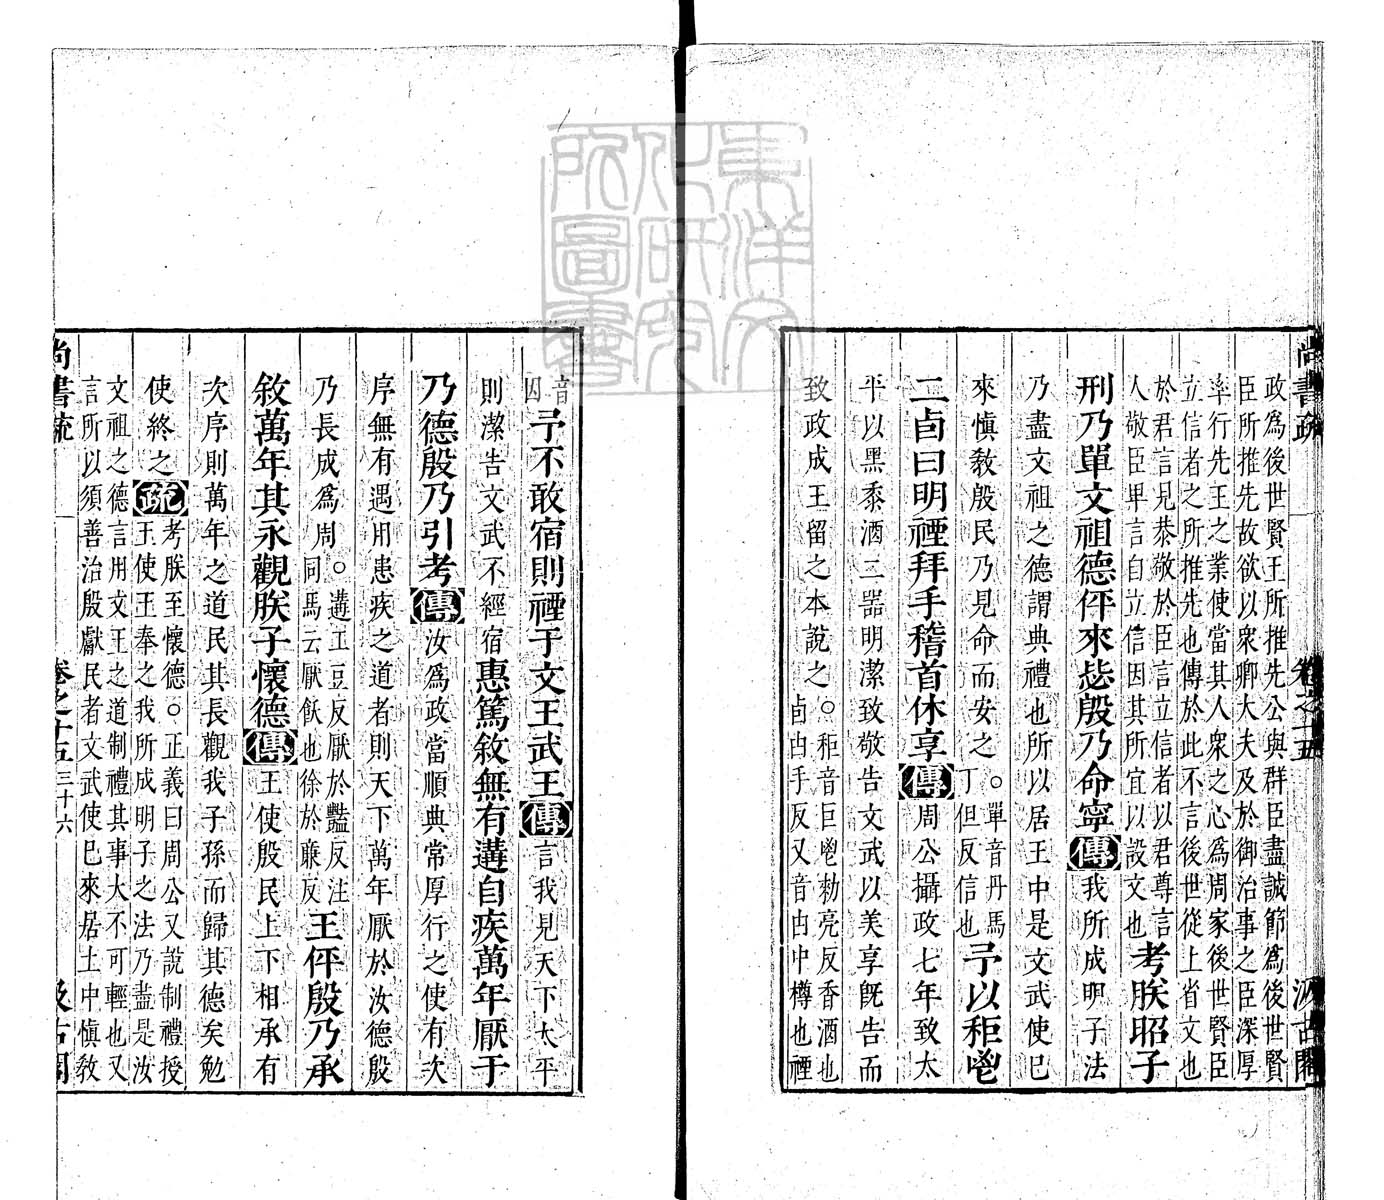 尚書疏 卷之十五 汲古閣
政爲後世賢王所推先公與群臣盡誠節爲後世賢
臣所推先故欲以衆卿大夫及於御治事之臣深厚
率行先王之業使當其人衆之心爲周家後世賢臣
立信者之所推先也傳於此不言後世從上省文也
於君言見恭敬於臣言立信者以君尊言
人敬臣卑言自立信因其所宜以設文也
考朕昭子
刑乃單文祖德伻來毖殷乃命寧傳我所成明子法
乃盡文祖之德謂典禮也所以居王中是文武使巳
來慎敎殷民乃見命而安之○單音丹馬
丁但反信也
予以秬鬯
二卣曰明禋拜手稽首休享傳周公攝政七年致太
平以黑黍酒三器明潔致敬告文武以美享旣告而
致政成王留之本說之○秬音巨鬯勑亮反香酒也
卣由手反又音由中樽也禋
音
因
予不敢宿則禋于文王武王傳言我見天下太平
則潔告文武不經宿惠篤敘無有遘自疾萬年厭于
乃德殷乃引考傳汝爲政當順典常厚行之使有次
序無有遇用患疾之道者則天下萬年厭於汝德殷
乃長成爲周○遘工豆反厭於豔反注
同馬云厭飫也徐於廉反
王伻殷乃承
敘萬年其永觀朕子懷德傳王使殷民上下相承有
次序則萬年之道民其長觀我子孫而歸其德矣勉
使終之疏考朕至懷德○正義曰周公又說制禮授
王使王奉之我所成明子之法乃盡是汝
文祖之德言用文王之道制禮其事大不可輕也又
言所以須善治殷獻民者文武使巳來居土中慎敎
尚書疏 卷之十五 三十六 汲古閣
東洋文
化研究
所圖書